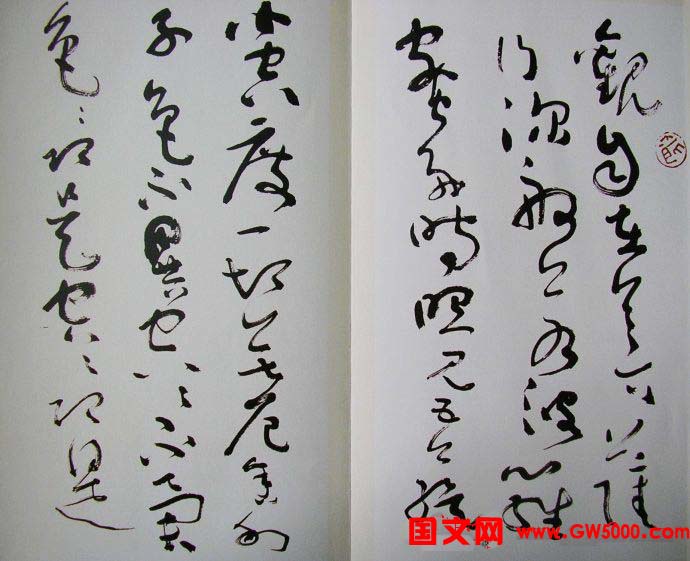 觀自在菩薩
行深般若波羅
蜜多時照見五蘊
皆空度一切苦厄舍利
子色不異空空不異
色色即是空空即是
国文网 www.GW5000.com